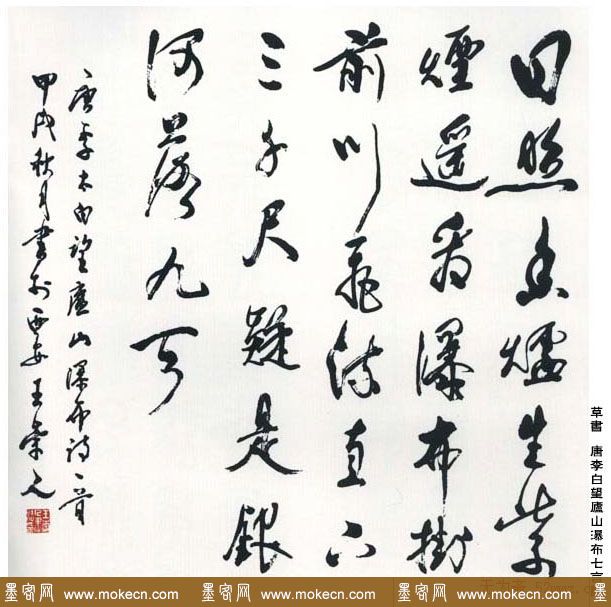 日照香爐生紫
煙遥看瀑布掛
前川飛流直下
三千尺疑是銀
河落九天
唐李太白望廬山瀑布詩一首
甲戌秋月書於西安王崇人
草書 唐李白望廬山瀑布七言
墨客网 www.mokecn.com 墨客网 www.mokecn.com 墨客网 www.mokecn.com